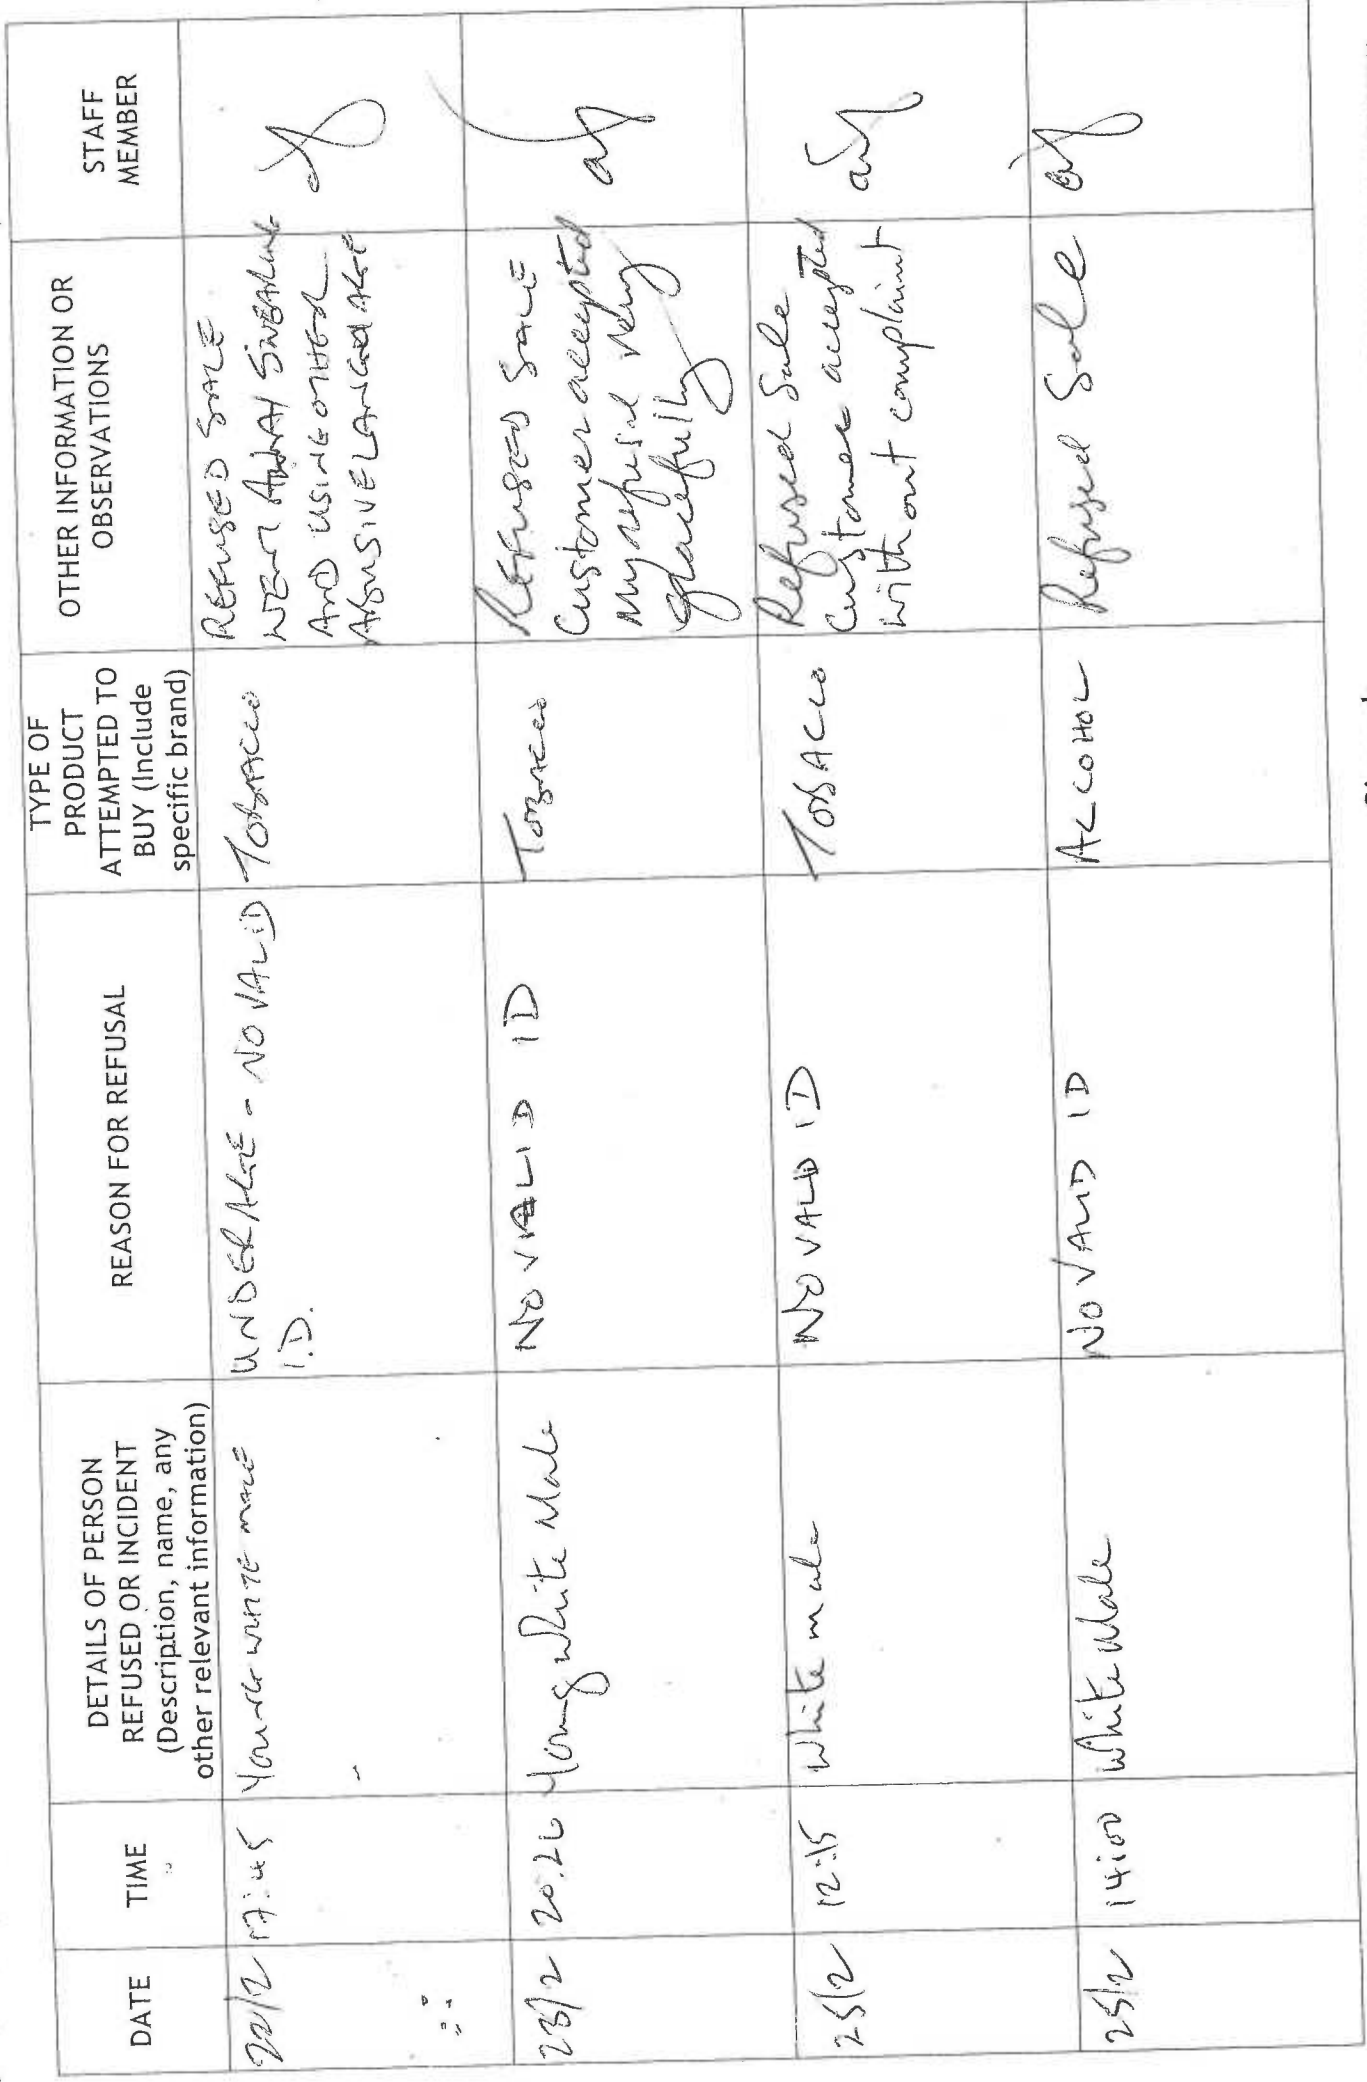 DATE
TIME
DETAILS OF PERSON
REFUSED OR INCIDENT
(Description, name, any
other relevant information)
REASON FOR REFUSAL
TYPE OF
PRODUCT
ATTEMPTED TO
BUY (Include
specific brand)
OTHER INFORMATION OR
OBSERVATIONS
STAFF
MEMBER
22/2
17:45
YOUNG WHITE MALE
UNDERAGE - NO VALID
I.D.
TOBACCO
REFUSED SALE
WENT AWAY SWEARING
AND USING OTHER
ABUSIVE LANGUAGE
23/2
20.26
Young white Male
NO VALID ID
TOBACCO
REFUSED SALE
Customer accepted
my refusal very
gracefully
25/2
12:15
White male
NO VALID ID
TOBACCO
Refused Sale
Customer accepted
with out complaint
25/2
14:00
White Male
NO VALID ID
ALCOHOL
Refused Sale